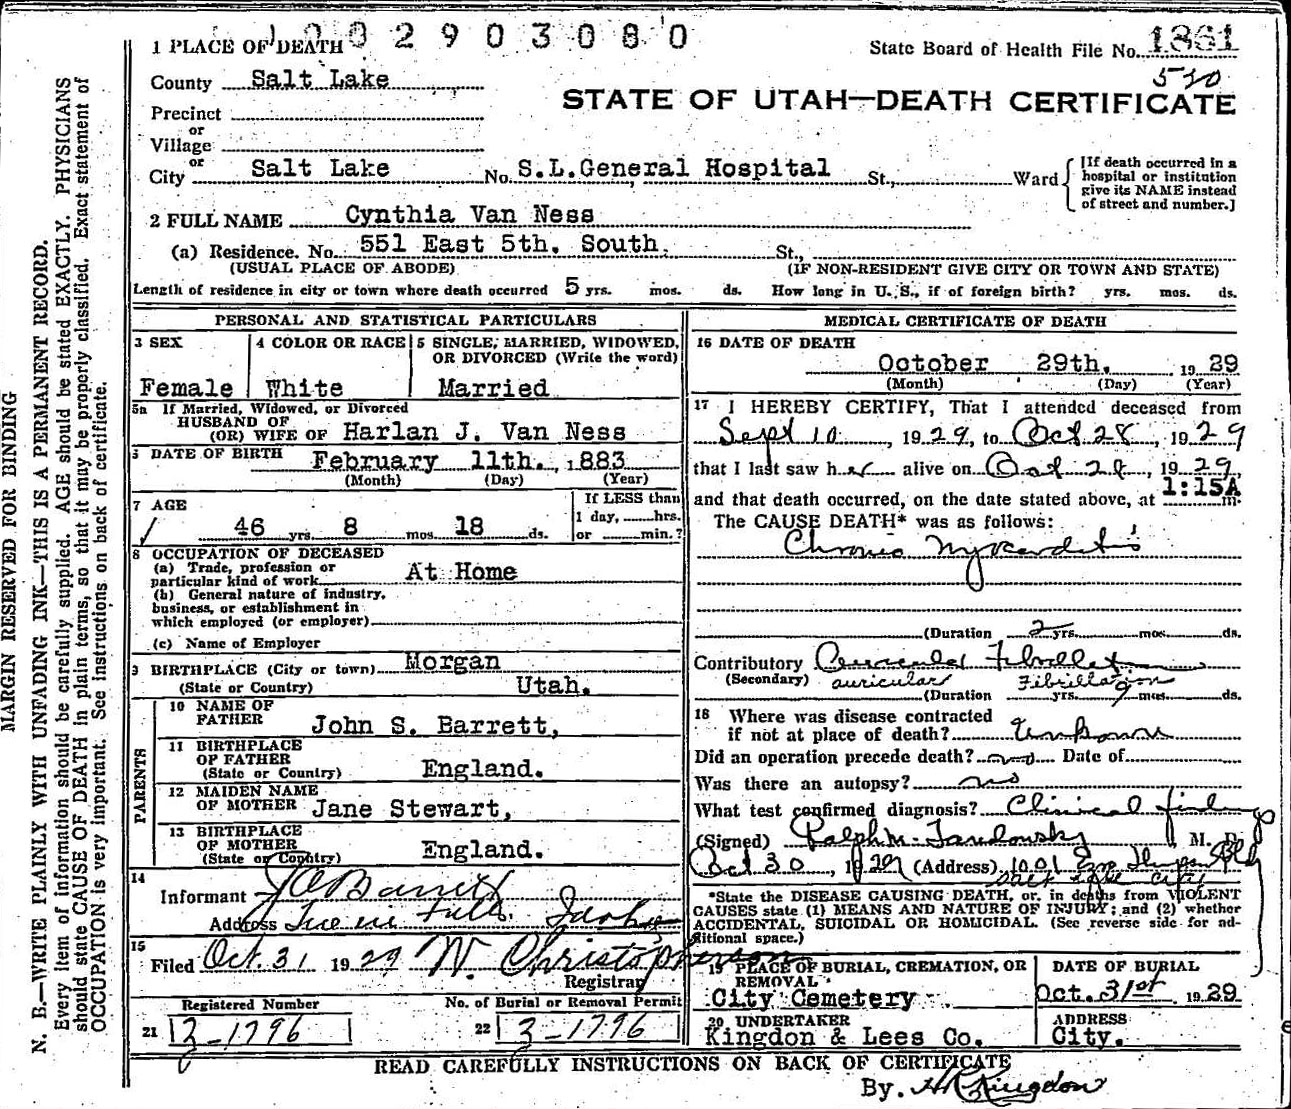 1002903080
1 PLACE OF DEATH
State Board of Health File No. 1861
County Salt Lake
510
STATE OF UTAH—DEATH CERTIFICATE
Precinct
or
Village
or
City Salt Lake No. S.L.General Hospital St., Ward
[If death occurred in a hospital or institution give its NAME instead of street and number.]
2 FULL NAME Cynthia Van Ness
(a) Residence. No. 551 East 5th. South. St.,
(USUAL PLACE OF ABODE) (IF NON-RESIDENT GIVE CITY OR TOWN AND STATE)
Length of residence in city or town where death occurred 5 yrs. mos. ds. How long in U. S., if of foreign birth? yrs. mos. ds.
PERSONAL AND STATISTICAL PARTICULARS
3 SEX
Female
4 COLOR OR RACE
White
5 SINGLE, MARRIED, WIDOWED,
OR DIVORCED (Write the word)
Married
5a If Married, Widowed, or Divorced
HUSBAND OF
(OR) WIFE OF Harlan J. Van Ness
6 DATE OF BIRTH February 11th. 1883
(Month) (Day) (Year)
7 AGE
46 yrs. 8 mos. 18 ds.
If LESS than
1 day, hrs.
or min.?
8 OCCUPATION OF DECEASED
(a) Trade, profession or
particular kind of work At Home
(b) General nature of industry,
business, or establishment in
which employed (or employer)
(c) Name of Employer
9 BIRTHPLACE (City or town) Morgan
(State or Country) Utah.
PARENTS
10 NAME OF
FATHER John S. Barrett,
11 BIRTHPLACE
OF FATHER
(State or Country) England.
12 MAIDEN NAME
OF MOTHER Jane Stewart,
13 BIRTHPLACE
OF MOTHER
(State or Country) England.
14
Informant J O Barrett
Address Twin Falls, Idaho
15
Filed Oct. 31 1929 W. Christopherson
Registrar
Registered Number
21 3-1796
No. of Burial or Removal Permit
22 3-1796
MEDICAL CERTIFICATE OF DEATH
16 DATE OF DEATH
October 29th. 1929
(Month) (Day) (Year)
17 I HEREBY CERTIFY, That I attended deceased from
Sept 10, 1929, to Oct 28, 1929
that I last saw her alive on Oct 28, 1929,
and that death occurred, on the date stated above, at 1:15A m.
The CAUSE DEATH* was as follows:
Chronic Myocarditis
(Duration 2 yrs. mos. ds.
Contributory Auricular Fibrillation
(Secondary) auricular Fibrillation
(Duration yrs. 9 mos. ds.
18 Where was disease contracted
if not at place of death? Unknown
Did an operation precede death? no Date of
Was there an autopsy? no
What test confirmed diagnosis? Clinical findings
(Signed) Ralph M. Tandowsky M. D.
Oct 30, 1929 (Address) 1001 Bldg
Salt Lake City
*State the DISEASE CAUSING DEATH, or, in deaths from VIOLENT
CAUSES state (1) MEANS AND NATURE OF INJURY; and (2) whether
ACCIDENTAL, SUICIDAL OR HOMICIDAL. (See reverse side for ad-
ditional space.)
19 PLACE OF BURIAL, CREMATION, OR
REMOVAL
City Cemetery
DATE OF BURIAL
Oct. 31st 1929
20 UNDERTAKER
Kingdon & Lees Co.
ADDRESS
City.
READ CAREFULLY INSTRUCTIONS ON BACK OF CERTIFICATE
By. H R Kingdon
MARGIN RESERVED FOR BINDING
N. B.—WRITE PLAINLY WITH UNFADING INK—THIS IS A PERMANENT RECORD.
Every item of information should be carefully supplied. AGE should be stated EXACTLY. PHYSICIANS
should state CAUSE OF DEATH in plain terms, so that it may be properly classified. Exact statement of
OCCUPATION is very important. See instructions on back of certificate.